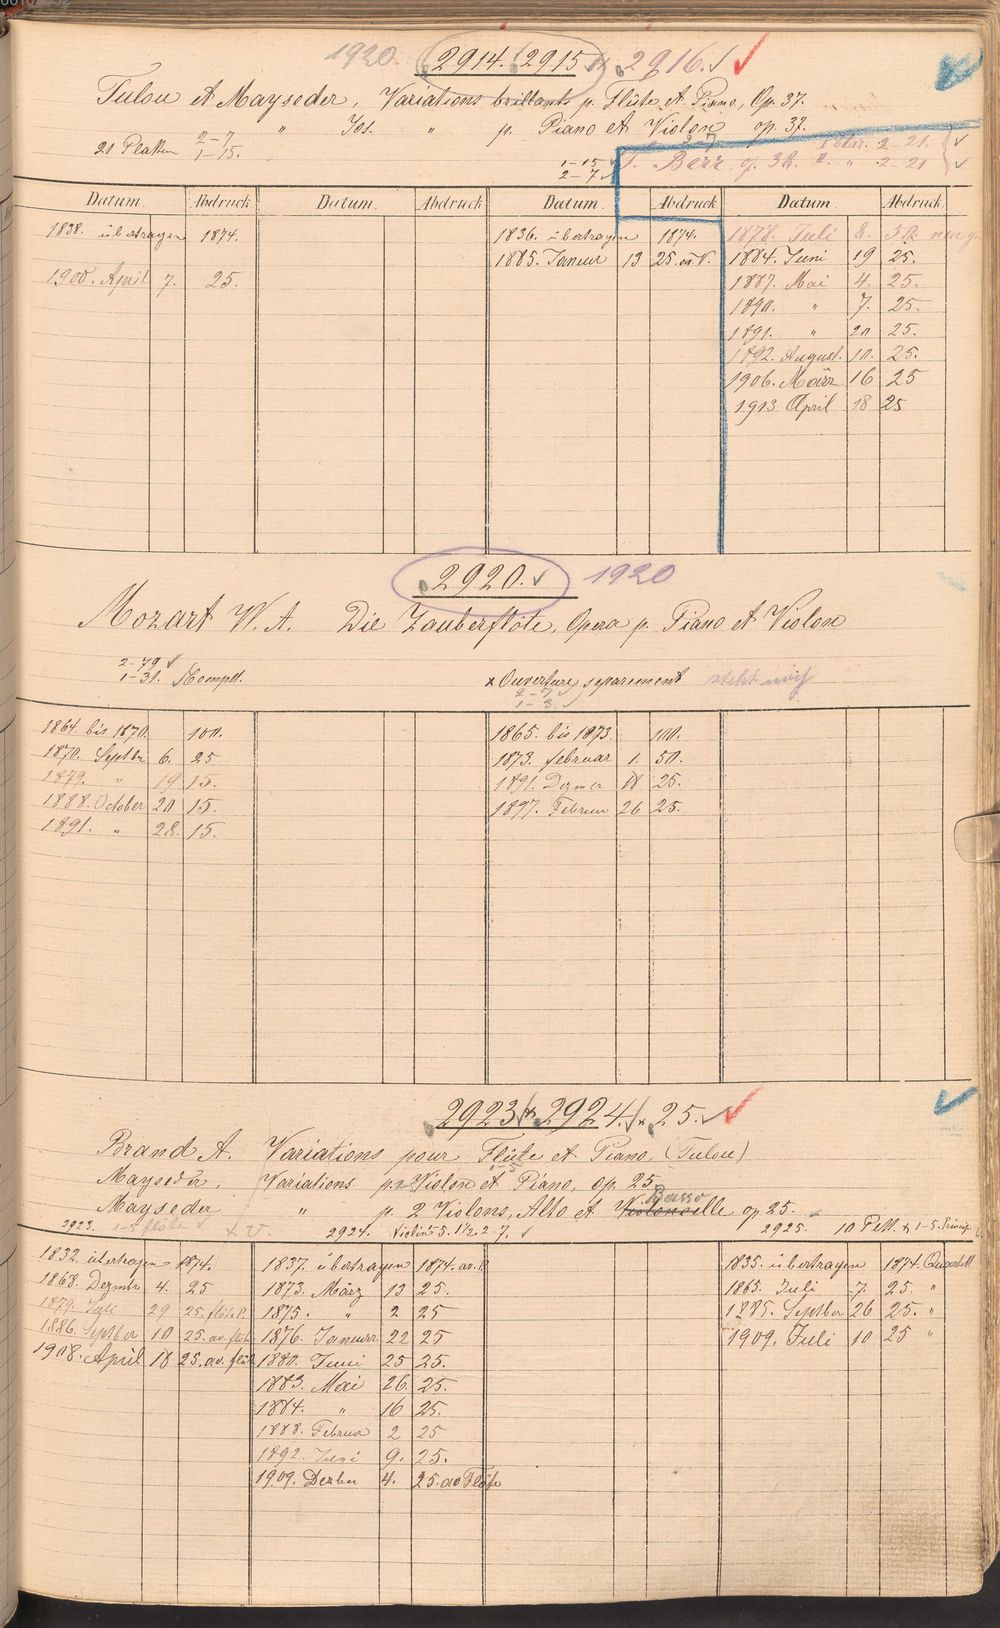 1920. 2914. 2915 2916.
Tulou et Mayseder, Variations brillants p. Flûte et Piano, Op. 37.
" Jos. " p. Piano et Violon op. 37.
21 Platten 2-7. 1-15.
1-15
2-7
Berr op. 38. II. " 2-21
2-21.
Datum. Abdruck Datum. Abdruck Datum. Abdruck Datum. Abdruck.
1838. übertragen 1874.
1908. April 7. 25.
1836. übertragen 1874.
1885. Januar 13 25. av V.
1878. Juli 8.
1884. Juni 19 25.
1887. Mai 4. 25.
1890. " 7. 25.
1891. " 20 25.
1892. August. 10. 25.
1906. März 16 25
1913 April 18 25
2920. 1920
Mozart W. A. Die Zauberflöte, Opera p. Piano et Violon
2-79
1-31. Komplt.
x Ouverture separement
2-7
1-3
1864. bis 1870. 100.
1870. Septbr 6. 25
1879. " 19 15.
1888. October 20 15.
1891. " 28. 15.
1865. bis 1873. 100.
1873. februar 1. 50.
1891. Dezmer 18 25.
1897. Februar 26 25.
2923 2924. 25.
Brand A. Variations pour Flûte et Piano, (Tulou)
Mayseder, Variations p. Violon et Piano, op. 25
Mayseder " p. 2 Violons, Alto et Violoncelle Basso op 25.
2923. 1-4 flöte x V. 2924. Violin 5. 1/2. 2-7. 2925. 10 Plt. x 1-5. Princip.
1832. übertragen 1874.
1868. Dezmbr 4. 25
1879. Juli 29 25. flöte P.
1886. Septber 10 25. av. flöt
1908. April 18 25. av. flöt
1837. übertragen 1874. av. P.
1873. März 13 25.
1875. " 2 25
1876. Januar 22 25
1880. Juni 25 25.
1883. Mai 26. 25.
1884. " 16 25.
1888. Februar 2 25
1892. Juni 9. 25.
1909. Dezber 4. 25. av Flöte
1835. übertragen 1874. Quartett
1865. Juli 7. 25. "
1885. Septber 26 25. "
1909. Juli 10 25 "